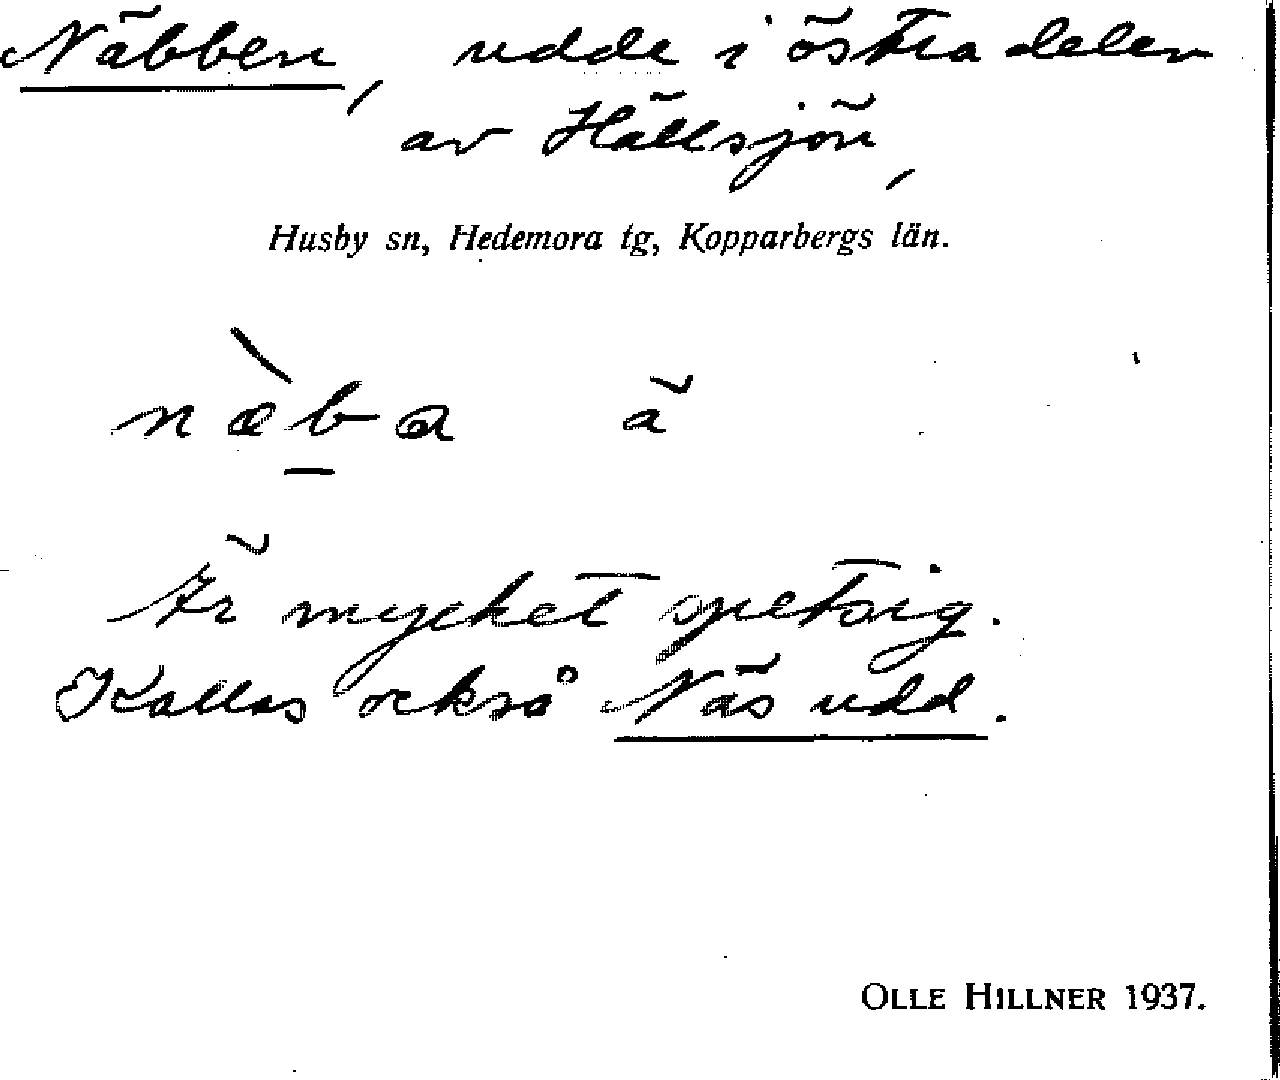 Näbben, udde i östra delen
av Hällsjön,
Husby sn, Hedemora tg, Kopparbergs län.
næ̀b̲a ä
Är mycket spetsig.
Kallas också Näs udd.
OLLE HILLNER 1937.